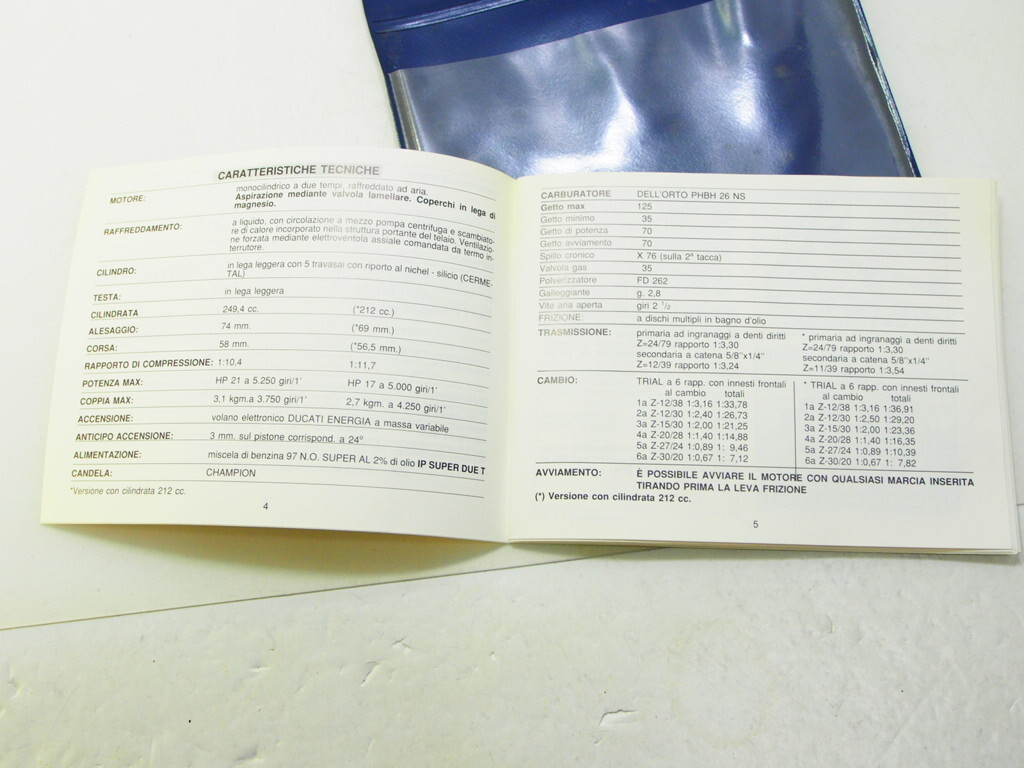 CARATTERISTICHE TECNICHE
MOTORE: monocilindrico a due tempi, raffreddato ad aria.
Aspirazione mediante valvola lamellare. Coperchi in lega di
magnesio.
RAFFREDDAMENTO: a liquido, con circolazione a mezzo pompa centrifuga e scambiato-
re di calore incorporato nella struttura portante del telaio. Ventilazio-
ne forzata mediante elettroventola assiale comandata da termo in-
terrutore.
CILINDRO: in lega leggera con 5 travasai con riporto al nichel - silicio (CERME-
TAL)
TESTA: in lega leggera
CILINDRATA 249,4 cc. (*212 cc.)
ALESAGGIO: 74 mm. (*69 mm.)
CORSA: 58 mm. (*56,5 mm.)
RAPPORTO DI COMPRESSIONE: 1:10,4 1:11,7
POTENZA MAX: HP 21 a 5.250 giri/1' HP 17 a 5.000 giri/1'
COPPIA MAX: 3,1 kgm.a 3.750 giri/1' 2,7 kgm. a 4.250 giri/1'
ACCENSIONE: volano elettronico DUCATI ENERGIA a massa variabile
ANTICIPO ACCENSIONE: 3 mm. sul pistone corrispond. a 24º
ALIMENTAZIONE: miscela di benzina 97 N.O. SUPER AL 2% di olio IP SUPER DUE T
CANDELA: CHAMPION
*Versione con cilindrata 212 cc.
4
CARBURATORE DELL'ORTO PHBH 26 NS
Getto max 125
Getto minimo 35
Getto di potenza 70
Getto avviamento 70
Spillo cronico X 76 (sulla 2ª tacca)
Valvola gas 35
Polverizzatore FD 262
Galleggiante g. 2,8
Vite aria aperta giri 2 1/2
FRIZIONE: a dischi multipli in bagno d'olio
TRASMISSIONE: primaria ad ingranaggi a denti diritti * primaria ad ingranaggi a denti diritti
Z=24/79 rapporto 1:3,30 Z=24/79 rapporto 1:3,30
secondaria a catena 5/8"x1/4" secondaria a catena 5/8"x1/4"
Z=12/39 rapporto 1:3,24 Z=11/39 rapporto 1:3,54
CAMBIO: TRIAL a 6 rapp. con innesti frontali * TRIAL a 6 rapp. con innesti frontali
al cambio totali al cambio totali
1a Z-12/38 1:3,16 1:33,78 1a Z-12/38 1:3,16 1:36,91
2a Z-12/30 1:2,40 1:26,73 2a Z-12/30 1:2,50 1:29,20
3a Z-15/30 1:2,00 1:21,25 3a Z-15/30 1:2,00 1:23,36
4a Z-20/28 1:1,40 1:14,88 4a Z-20/28 1:1,40 1:16,35
5a Z-27/24 1:0,89 1: 9,46 5a Z-27/24 1:0,89 1:10,39
6a Z-30/20 1:0,67 1: 7,12 6a Z-30/20 1:0,67 1: 7,82
AVVIAMENTO: È POSSIBILE AVVIARE IL MOTORE CON QUALSIASI MARCIA INSERITA
TIRANDO PRIMA LA LEVA FRIZIONE
(*) Versione con cilindrata 212 cc.
5